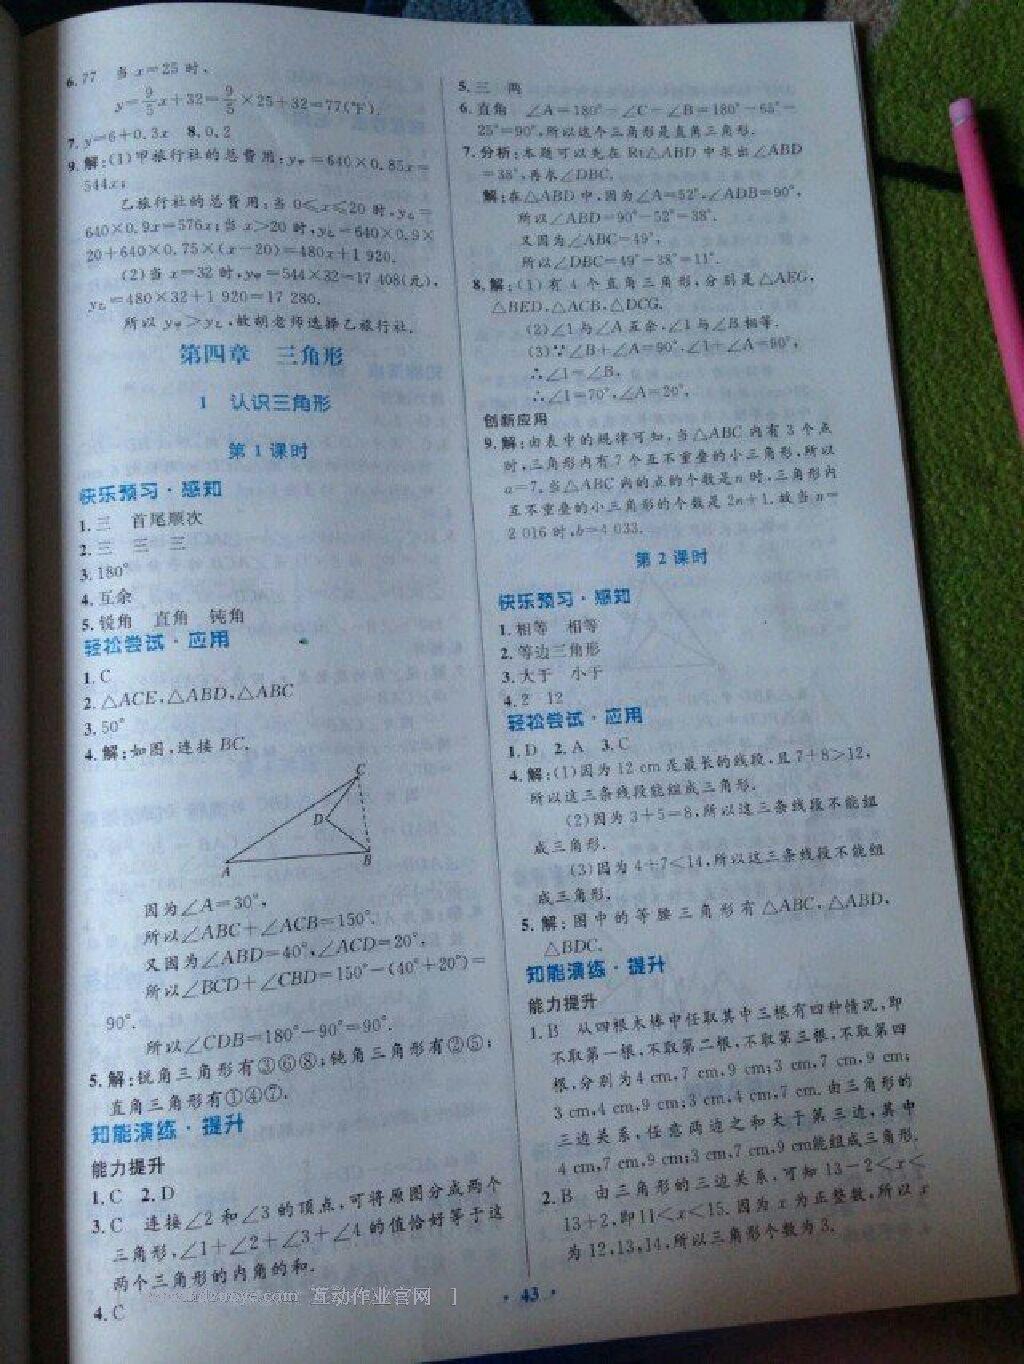 6. 77 当 x=25 时,
y=9/5x+32=9/5×25+32=77(℉).
7. y=6+0.3x 8. 0.2
9. 解:(1)甲旅行社的总费用:y甲=640×0.85x=
544x;
乙旅行社的总费用:当 0≤x≤20 时,y乙=
640×0.9x=576x;当 x>20 时,y乙=640×0.9×
20+640×0.75×(x-20)=480x+1 920.
(2)当 x=32 时,y甲=544×32=17 408(元),
y乙=480×32+1 920=17 280.
所以 y甲>y乙,故胡老师选择乙旅行社.
第四章 三角形
1 认识三角形
第1课时
快乐预习·感知
1. 三 首尾顺次
2. 三 三 三
3. 180°
4. 互余
5. 锐角 直角 钝角
轻松尝试·应用
1. C
2. △ACE,△ABD,△ABC
3. 50°
4. 解:如图,连接 BC.
C
D
A B
因为∠A=30°,
所以∠ABC+∠ACB=150°.
又因为∠ABD=40°,∠ACD=20°,
所以∠BCD+∠CBD=150°-(40°+20°)=
90°.
所以∠CDB=180°-90°=90°.
5. 解:锐角三角形有③⑥⑧;钝角三角形有②⑤;
直角三角形有①④⑦.
知能演练·提升
能力提升
1. C 2. D
3. C 连接∠2 和∠3 的顶点,可将原图分成两个
三角形,∠1+∠2+∠3+∠4 的值恰好等于这
两个三角形的内角的和.
4. C
互动作业官网 ]
5. 三 两
6. 直角 ∠A=180°-∠C-∠B=180°-65°-
25°=90°,所以这个三角形是直角三角形.
7. 分析:本题可以先在 Rt△ABD 中求出∠ABD
=38°,再求∠DBC.
解:在△ABD 中,因为∠A=52°,∠ADB=90°,
所以∠ABD=90°-52°=38°.
又因为∠ABC=49°,
所以∠DBC=49°-38°=11°.
8. 解:(1)有 4 个直角三角形,分别是△AEG,
△BED,△ACB,△DCG.
(2)∠1 与∠A 互余,∠1 与∠B 相等.
(3)∵∠B+∠A=90°,∠1+∠A=90°,
∴∠1=∠B,
∴∠1=70°,∠A=20°,
创新应用
9. 解:由表中的规律可知,当△ABC 内有 3 个点
时,三角形内有 7 个互不重叠的小三角形,所以
a=7,当△ABC 内的点的个数是 n 时,三角形内
互不重叠的小三角形的个数是 2n+1.故当 n=
2 016 时,b=4 033.
第2课时
快乐预习·感知
1. 相等 相等
2. 等边三角形
3. 大于 小于
4. 2 12
轻松尝试·应用
1. D 2. A 3. C
4. 解:(1)因为 12 cm 是最长的线段,且 7+8>12,
所以这三条线段能组成三角形.
(2)因为 3+5=8,所以这三条线段不能组
成三角形.
(3)因为 4+7<14,所以这三条线段不能组
成三角形.
5. 解:图中的等腰三角形有△ABC,△ABD,
△BDC.
知能演练·提升
能力提升
1. B 从四根木棒中任取其中三根有四种情况,即
不取第一根,不取第二根,不取第三根,不取第四
根,分别为 4 cm,7 cm,9 cm;3 cm,7 cm,9 cm;
3 cm,4 cm,9 cm;3 cm,4 cm,7 cm.由三角形的
三边关系,任意两边之和大于第三边,其中
4 cm,7 cm,9 cm;3 cm,7 cm,9 cm能组成三角形.
2. B 由三角形的三边关系,可知 13-2<x<
13+2,即11<x<15.因为 x 为正整数,所以 x
为 12,13,14,所以三角形个数为 3.
·43·